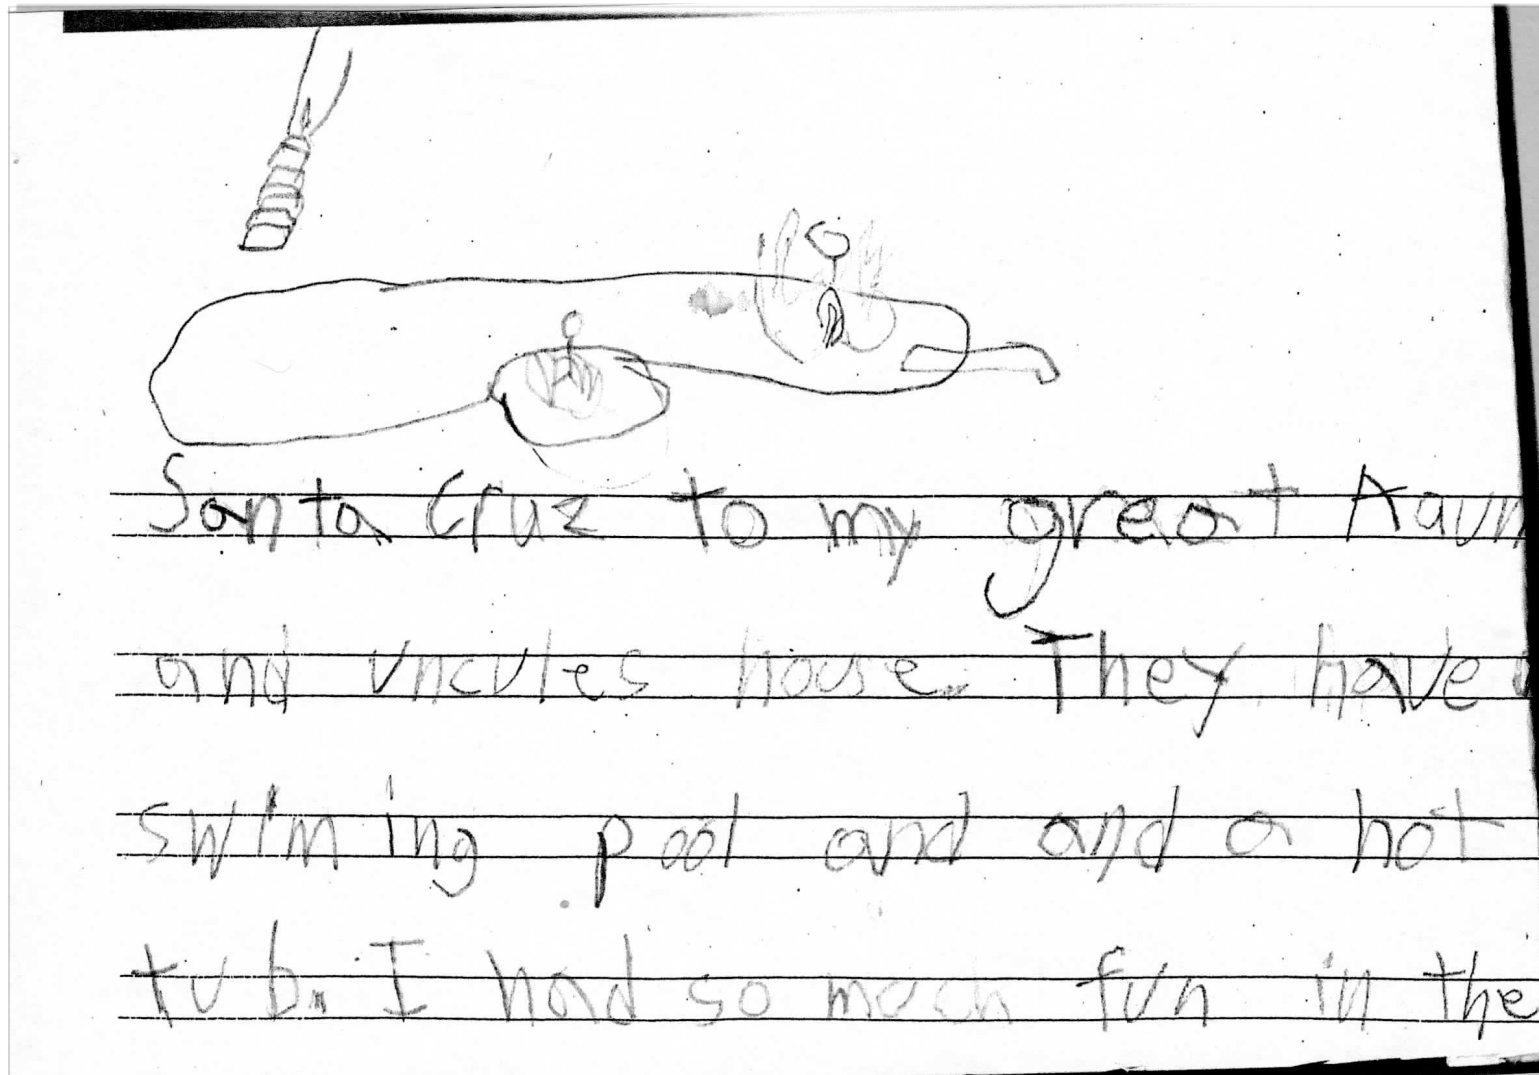 Santa Cruz to my great Aaun
and uncules house. They have
swiming pool and and a hot
tub. I had so much fun in the